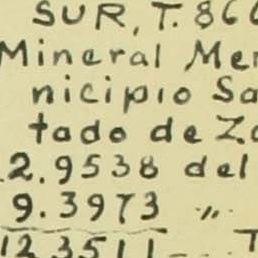 SUR, T. 860
Mineral Mer
nicipio Sa
tado de Za
2.9538 del
9.3973 〃.
12 3511